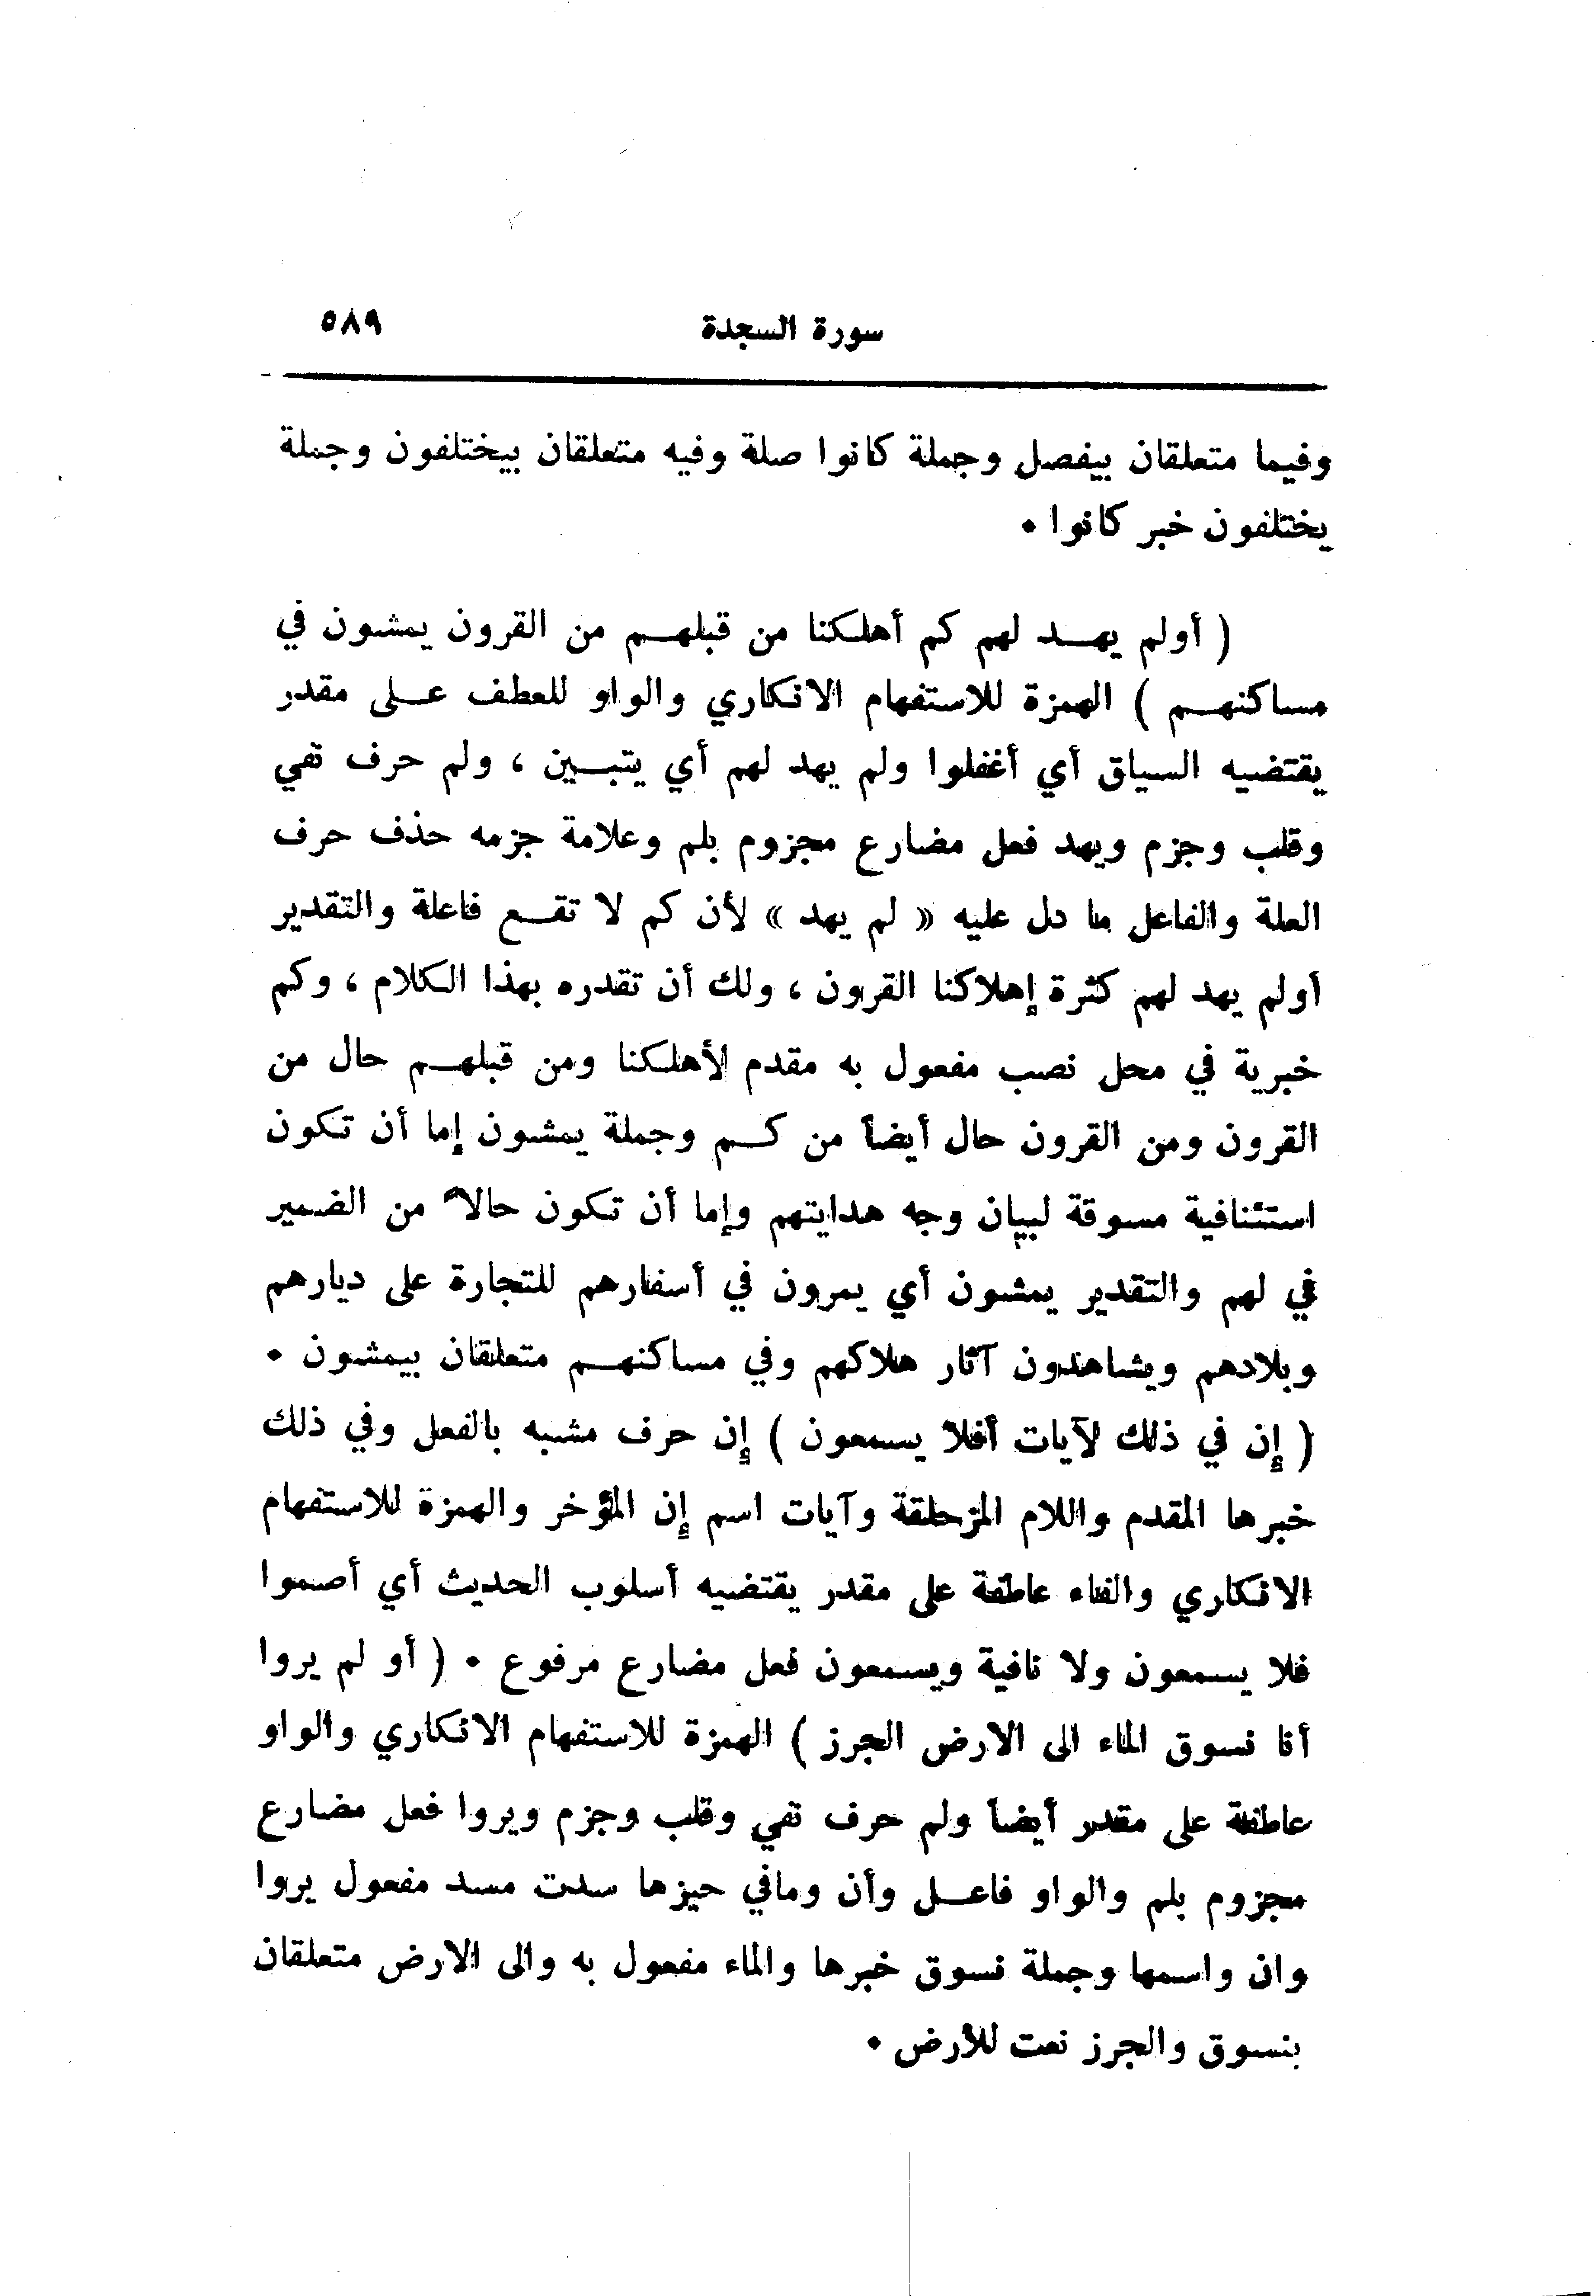 سورة السجدة ٥٨٩
وفيما متعلقان بيفصل وجملة كانوا صلة وفيه متعلقان بيختلفون وجملة
يختلفون خبر كانوا •
( أولم يهد لهم كم أهلكنا من قبلهم من القرون يمشون في
مساكنهم ) الهمزة للاستفهام الانكاري والواو للعطف على مقدر
يقتضيه السياق أي أغفلوا ولم يهد لهم أي يتبين ، ولم حرف نفي
وقلب وجزم ويهد فعل مضارع مجزوم بلم وعلامة جزمه حذف حرف
العلة والفاعل ما دل عليه « لم يهد » لأن كم لا تقع فاعلة والتقدير
أولم يهد لهم كثرة إهلاكنا القرون ، ولك أن تقدره بهذا الكلام ، وكم
خبرية في محل نصب مفعول به مقدم لأهلكنا ومن قبلهم حال من
القرون ومن القرون حال أيضاً من كم وجملة يمشون إما أن تكون
استئنافية مسوقة لبيان وجه هدايتهم وإما أن تكون حالاً من الضمير
في لهم والتقدير يمشون أي يمرون في أسفارهم للتجارة على ديارهم
وبلادهم ويشاهدون آثار هلاكهم وفي مساكنهم متعلقان بيمشون •
( إن في ذلك لآيات أفلا يسمعون ) إن حرف مشبه بالفعل وفي ذلك
خبرها المقدم واللام المزحلقة وآيات اسم إن المؤخر والهمزة للاستفهام
الانكاري والفاء عاطفة على مقدر يقتضيه أسلوب الحديث أي أصموا
فلا يسمعون ولا نافية ويسمعون فعل مضارع مرفوع • ( أو لم يروا
أنا نسوق الماء الى الارض الجرز ) الهمزة للاستفهام الانكاري والواو
عاطفة على مقدر أيضاً ولم حرف نفي وقلب وجزم ويروا فعل مضارع
مجزوم بلم والواو فاعل وأن ومافي حيزها سدت مسد مفعول يروا
وان واسمها وجملة نسوق خبرها والماء مفعول به والى الارض متعلقان
بنسوق والجرز نعت للأرض •